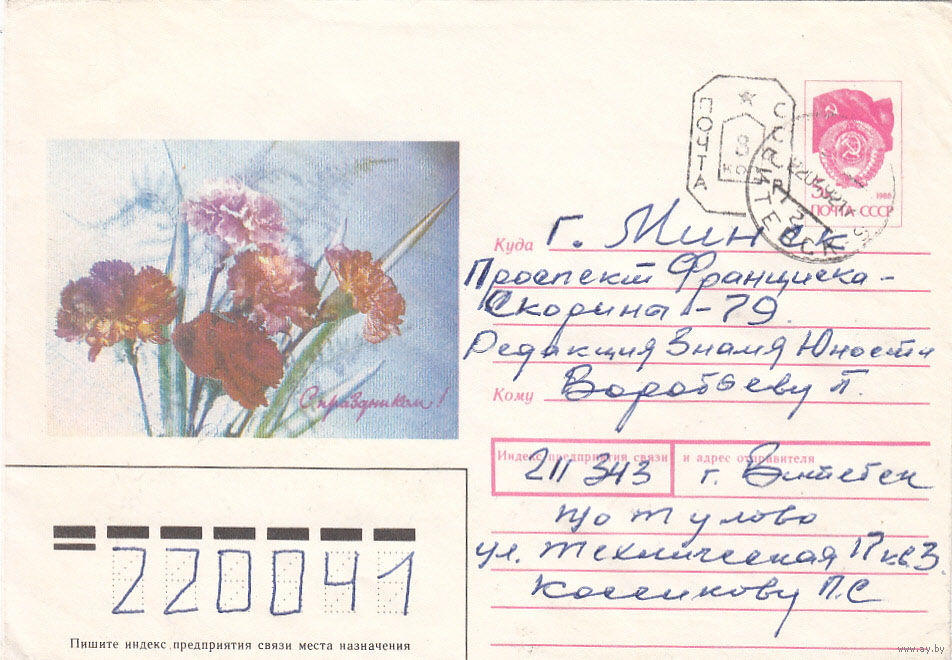 ПОЧТА
СССР
8
КОП
1988
ПОЧТА СССР
С праздником!
Куда г. Минск
Проспект Франциска-
Скорины-79
Редакция Знамя Юности
Кому Воробьеву П.
Индекс предприятия связи и адрес отправителя
211 343 г. Витебск
п/о Тулово
ул. Техническая 17 кв. 3.
П.С
220041
Пишите индекс предприятия связи места назначения
www.ay.by